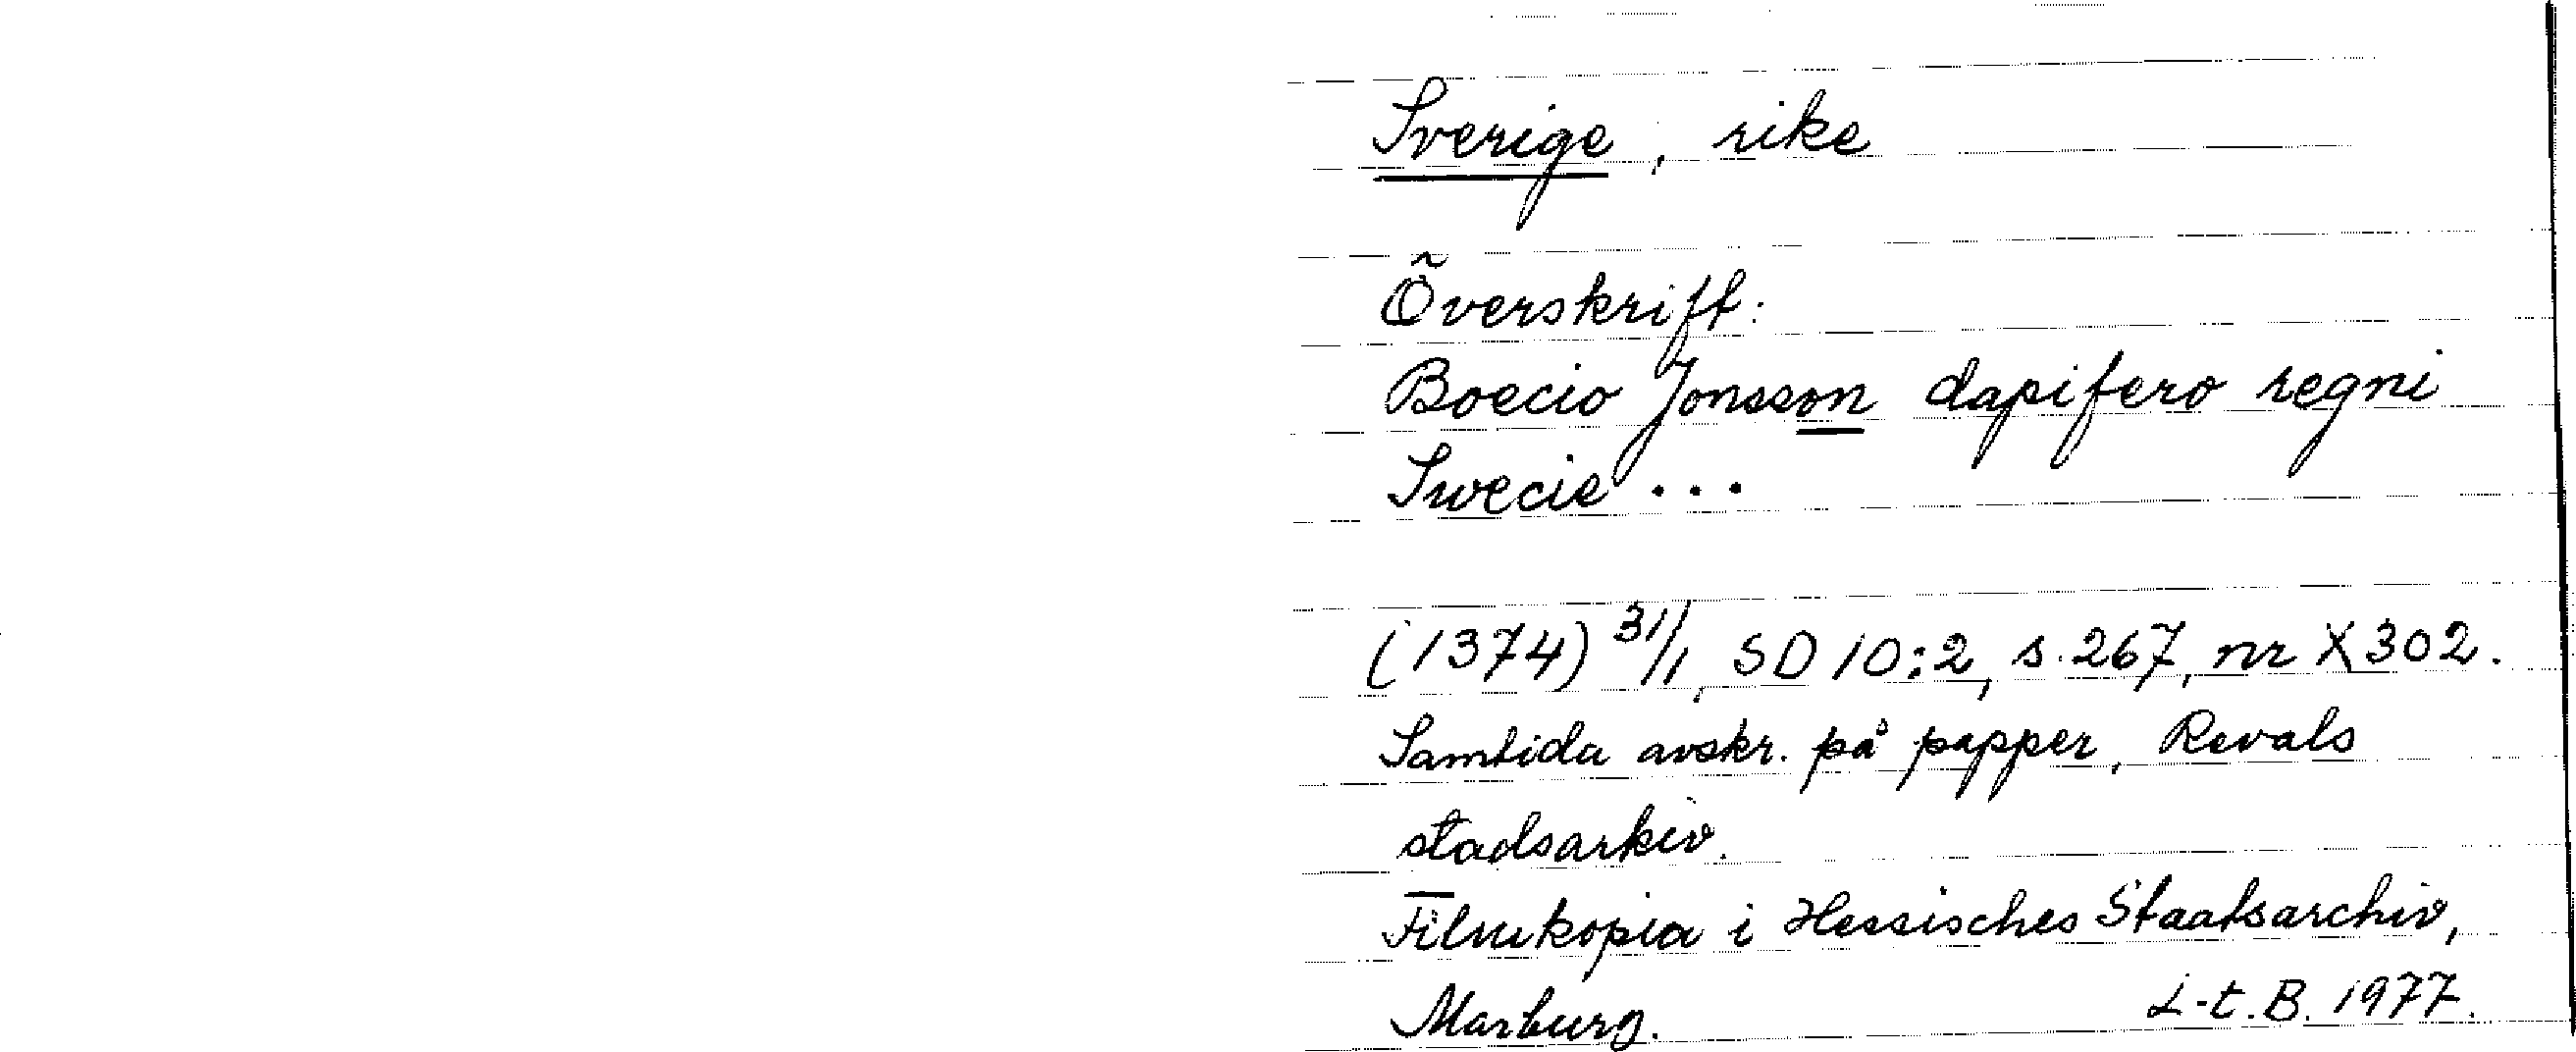 Sverige, rike
Överskrift:
Boecio Jonsson dapifero regni
Swecie ...
(1374) 31/1, SD 10:2, s. 267, nr X 302.
Samtida avskr. på papper, Revals
stadsarkiv.
Filmkopia i Hessisches Staatsarchiv,
Marburg.
L-t. B. 1977.